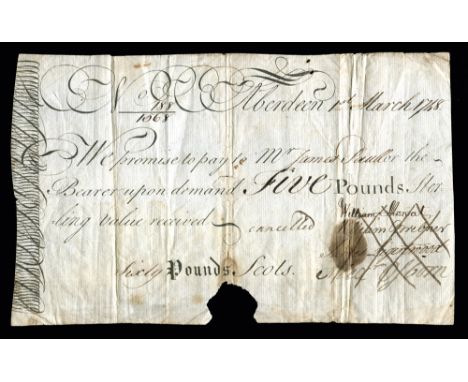 No 188/1068 Aberdeen 1st March 1748
We promise to pay to Mr James the
Bearer upon demand FIVE Pounds Ster
ling value received cancelled
Sixty Pounds Scots.
William Mowat